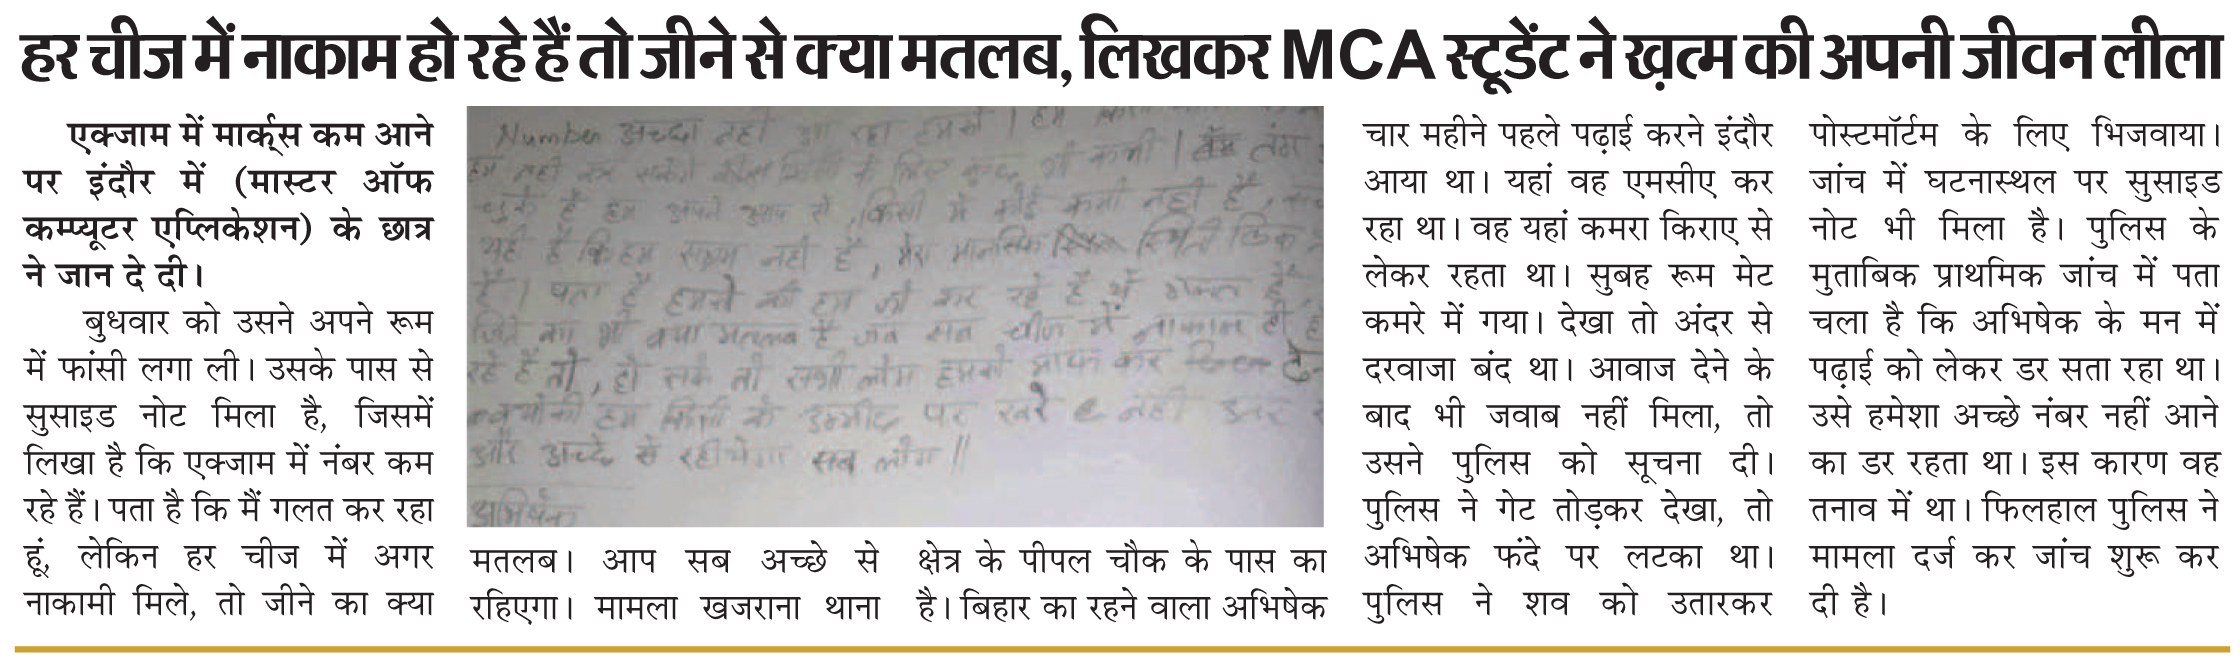 हर चीज में नाकाम हो रहे हैं तो जीने से क्या मतलब, लिखकर MCA स्टूडेंट ने ख़त्म की अपनी जीवन लीला
एक्जाम में मार्क्स कम आने
पर इंदौर में (मास्टर ऑफ
कम्प्यूटर एप्लिकेशन) के छात्र
ने जान दे दी।
बुधवार को उसने अपने रूम
में फांसी लगा ली। उसके पास से
सुसाइड नोट मिला है, जिसमें
लिखा है कि एक्जाम में नंबर कम
रहे हैं। पता है कि मैं गलत कर रहा
हूं, लेकिन हर चीज में अगर
नाकामी मिले, तो जीने का क्या
Number अच्छा नहीं आ रहा हमसे । हम
हम नहीं कर सकते के लिए कुछ भी कभी । तंग
चुके है हम अपने आप से, किसी में कोई कमी नहीं है,
यही है कि हम सक्षम नहीं है, मेरा मानसिक स्थिती ठिक
है । पता है हमसे की हम जो कर रहे है वो गलत है,
जिने का भी क्या मतलब है जब सब चीज में नाकाम हो
रहे है तो, हो सके तो सभी लोग हमसे माफ कर दे
क्योंकी हम किसी के उम्मीद पर खरे नहीं उतर
और अच्छे से रहीयेगा सब लोग ||
अभिषेक
मतलब। आप सब अच्छे से
रहिएगा। मामला खजराना थाना
क्षेत्र के पीपल चौक के पास का
है। बिहार का रहने वाला अभिषेक
चार महीने पहले पढ़ाई करने इंदौर
आया था। यहां वह एमसीए कर
रहा था। वह यहां कमरा किराए से
लेकर रहता था। सुबह रूम मेट
कमरे में गया। देखा तो अंदर से
दरवाजा बंद था। आवाज देने के
बाद भी जवाब नहीं मिला, तो
उसने पुलिस को सूचना दी।
पुलिस ने गेट तोड़कर देखा, तो
अभिषेक फंदे पर लटका था।
पुलिस ने शव को उतारकर
पोस्टमॉर्टम के लिए भिजवाया।
जांच में घटनास्थल पर सुसाइड
नोट भी मिला है। पुलिस के
मुताबिक प्राथमिक जांच में पता
चला है कि अभिषेक के मन में
पढ़ाई को लेकर डर सता रहा था।
उसे हमेशा अच्छे नंबर नहीं आने
का डर रहता था। इस कारण वह
तनाव में था। फिलहाल पुलिस ने
मामला दर्ज कर जांच शुरू कर
दी है।